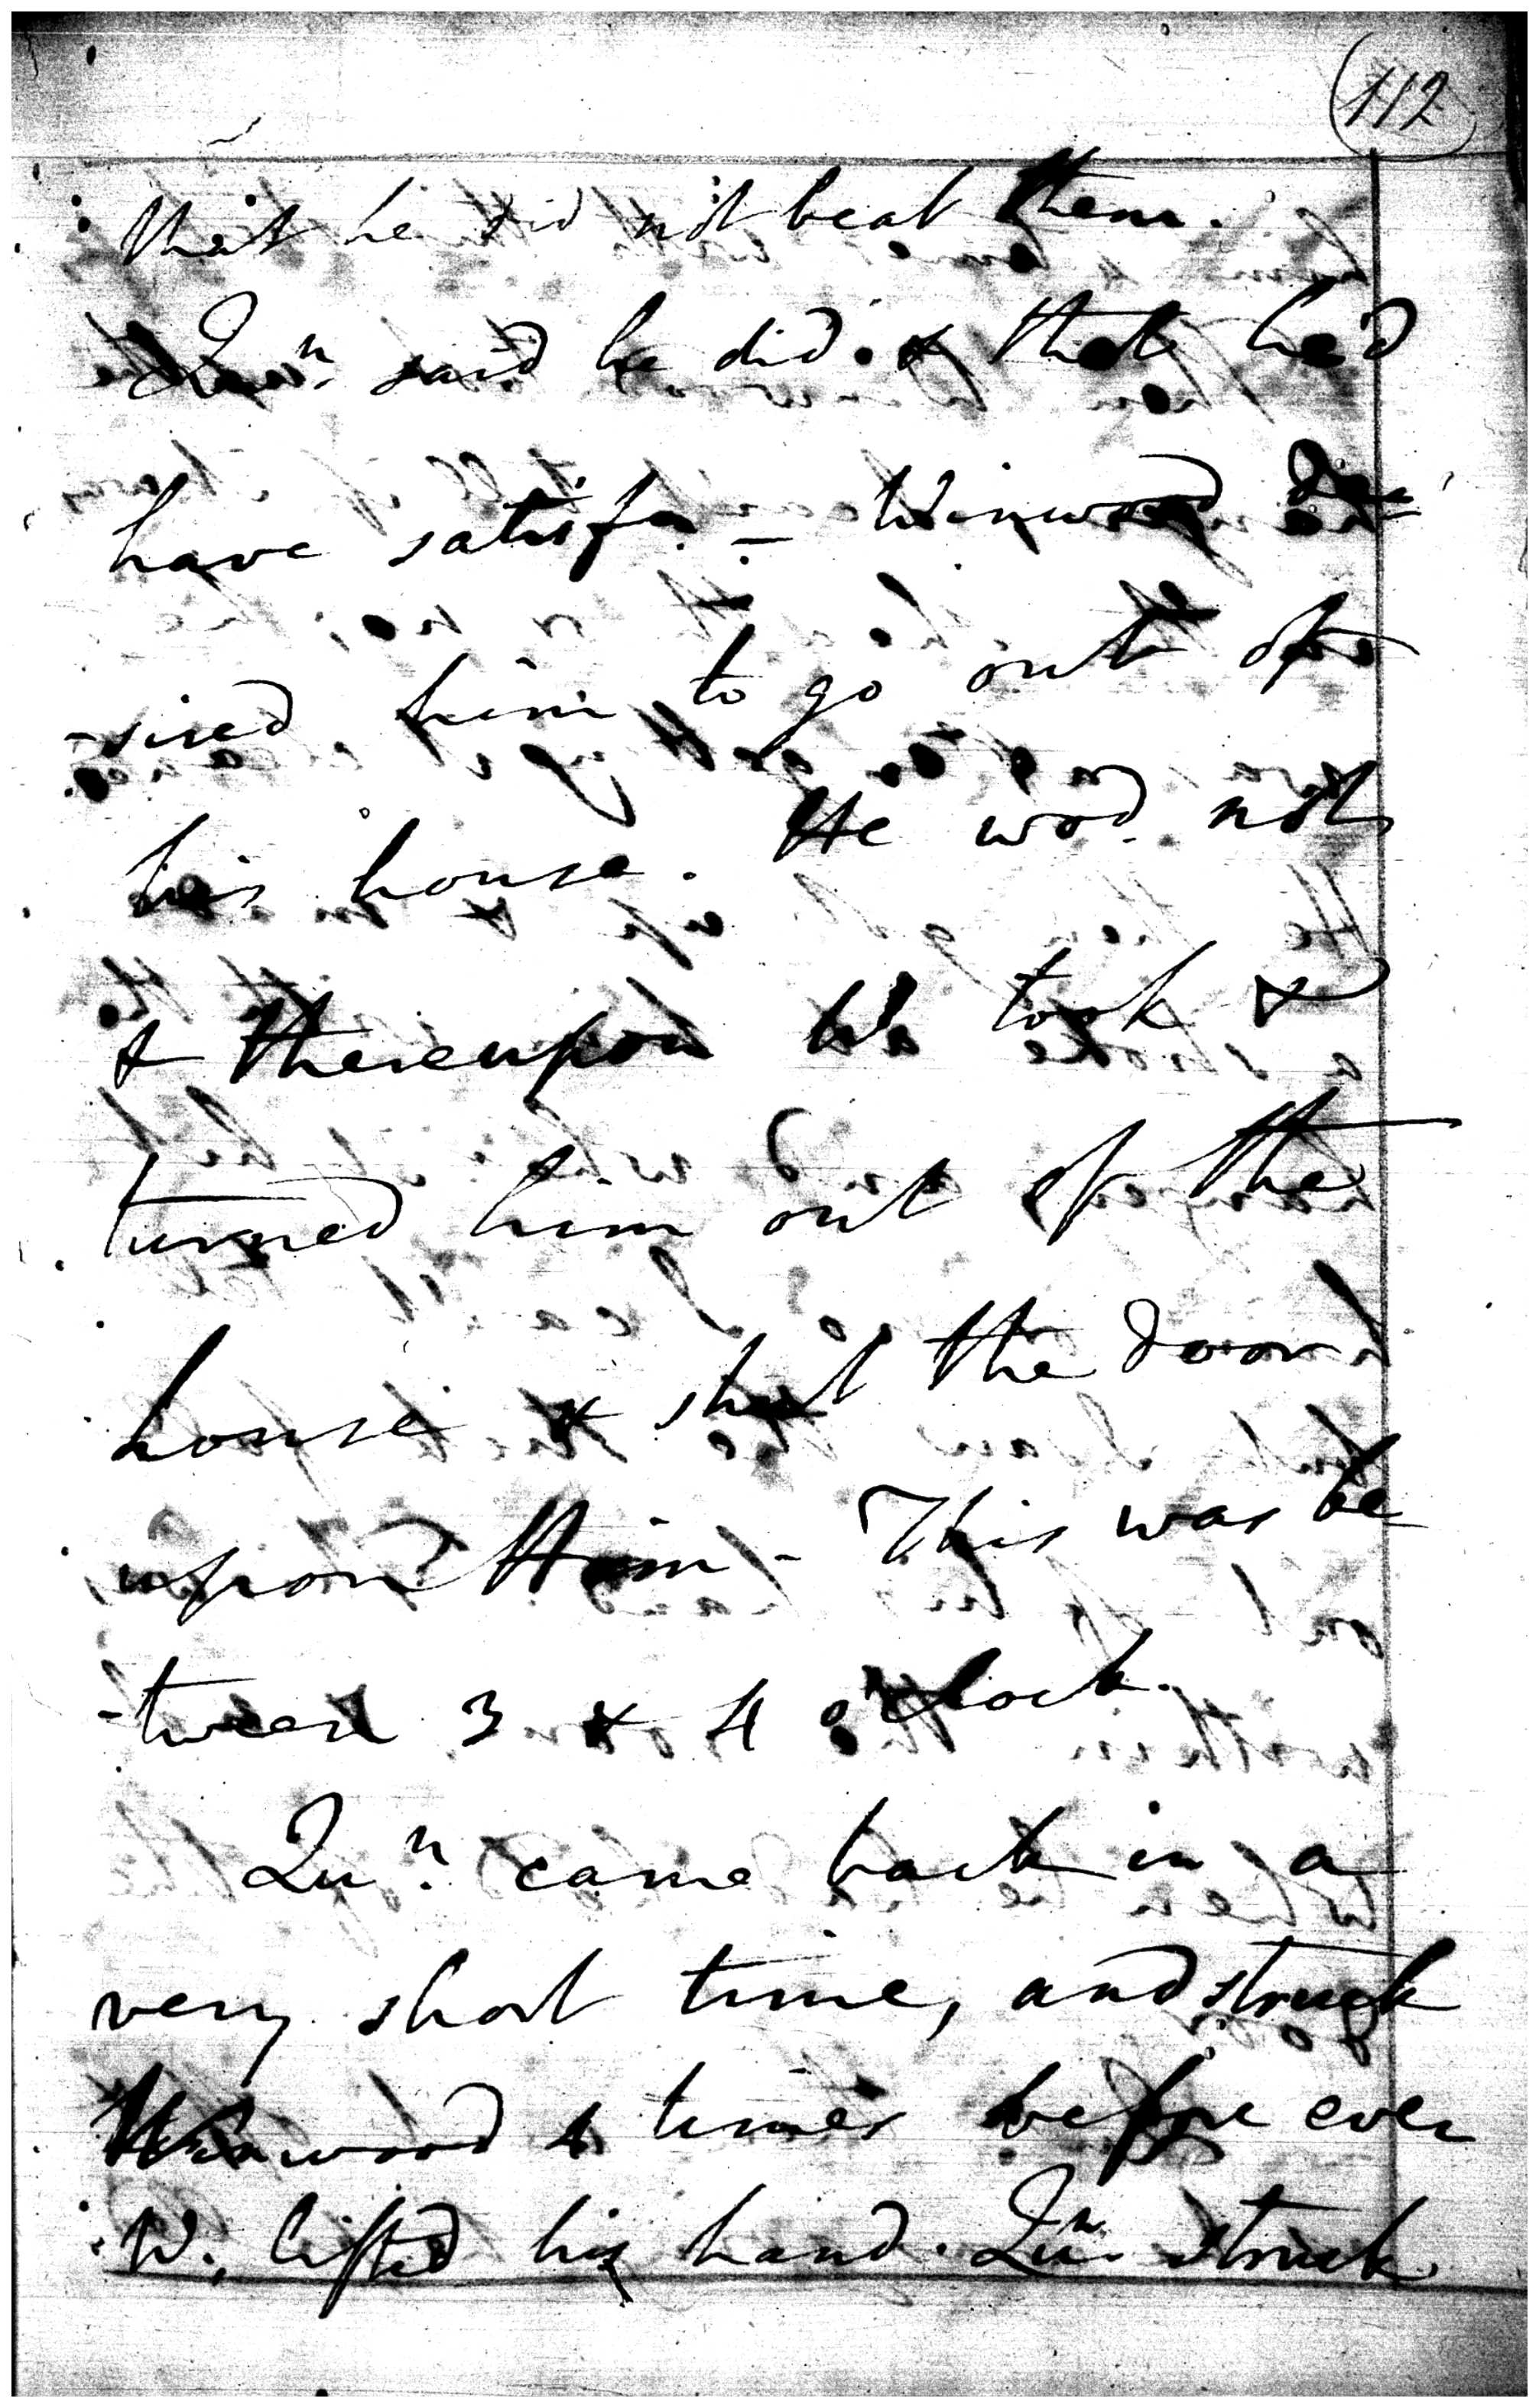 112
that he did not beat them.
Qun. said he did & that he'd
have satisfn. - Winwood de=
-sired him to go out of
his house. He wod. not
& thereupon W took &
turned him out of the
house & shut the door
upon Him - This was be
-tween 3 & 4 o'Clock.
Qun. came back in a
very short time, and struck
Winwood 4 times before ever
W. lifted his hand. Qun. struck